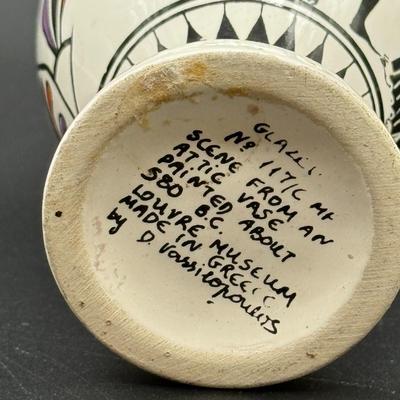 GLAZED
No 117/C MK
SCENE FROM AN
ATTIC VASE
PAINTED ABOUT
580 B.C.
LOUVRE MUSEUM
MADE IN GREECE
by D. Vassilopoulos